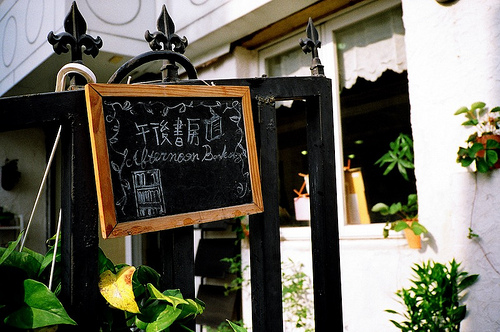 午後書房
Afternoon Books